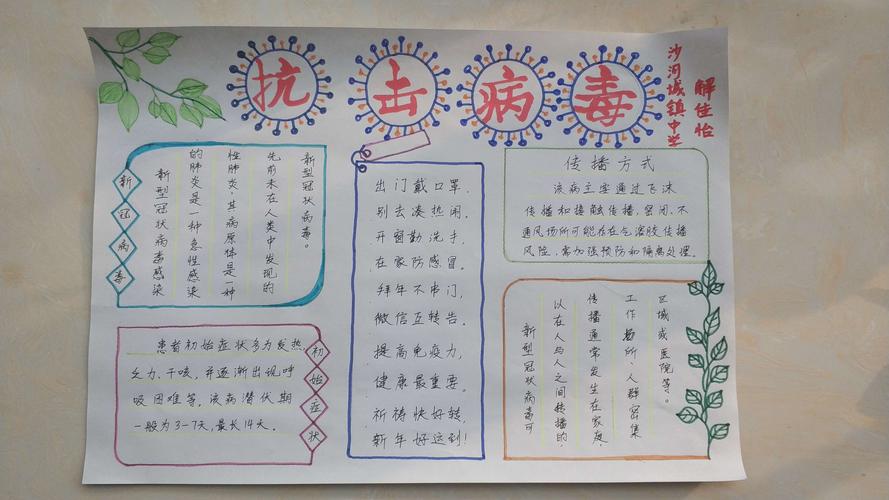 抗击病毒
沙河城镇中学
解佳怡
新冠病毒
新型冠状病毒感染
的肺炎是一种急性感染
性肺炎,其病原体是一种
先前未在人类中发现的
新型冠状病毒。
患者初始症状多为发热、
乏力、干咳,并逐渐出现呼
吸困难等,该病潜伏期
一般为3-7天,最长14天。
初始症状
出门戴口罩,
别去凑热闹。
开窗勤洗手,
在家防感冒。
拜年不串门,
微信互转告。
提高免疫力,
健康最重要。
祈祷快好转,
新年好运到!
传播方式
该病主要通过飞沫
传播和接触传播,密闭、不
通风场所可能存在气溶胶传播
风险,需加强预防和隔离处理。
新型冠状病毒可
以在人与人之间转播的,
传播通常发生在家庭、
工作场所、人群密集
区域或医院等。